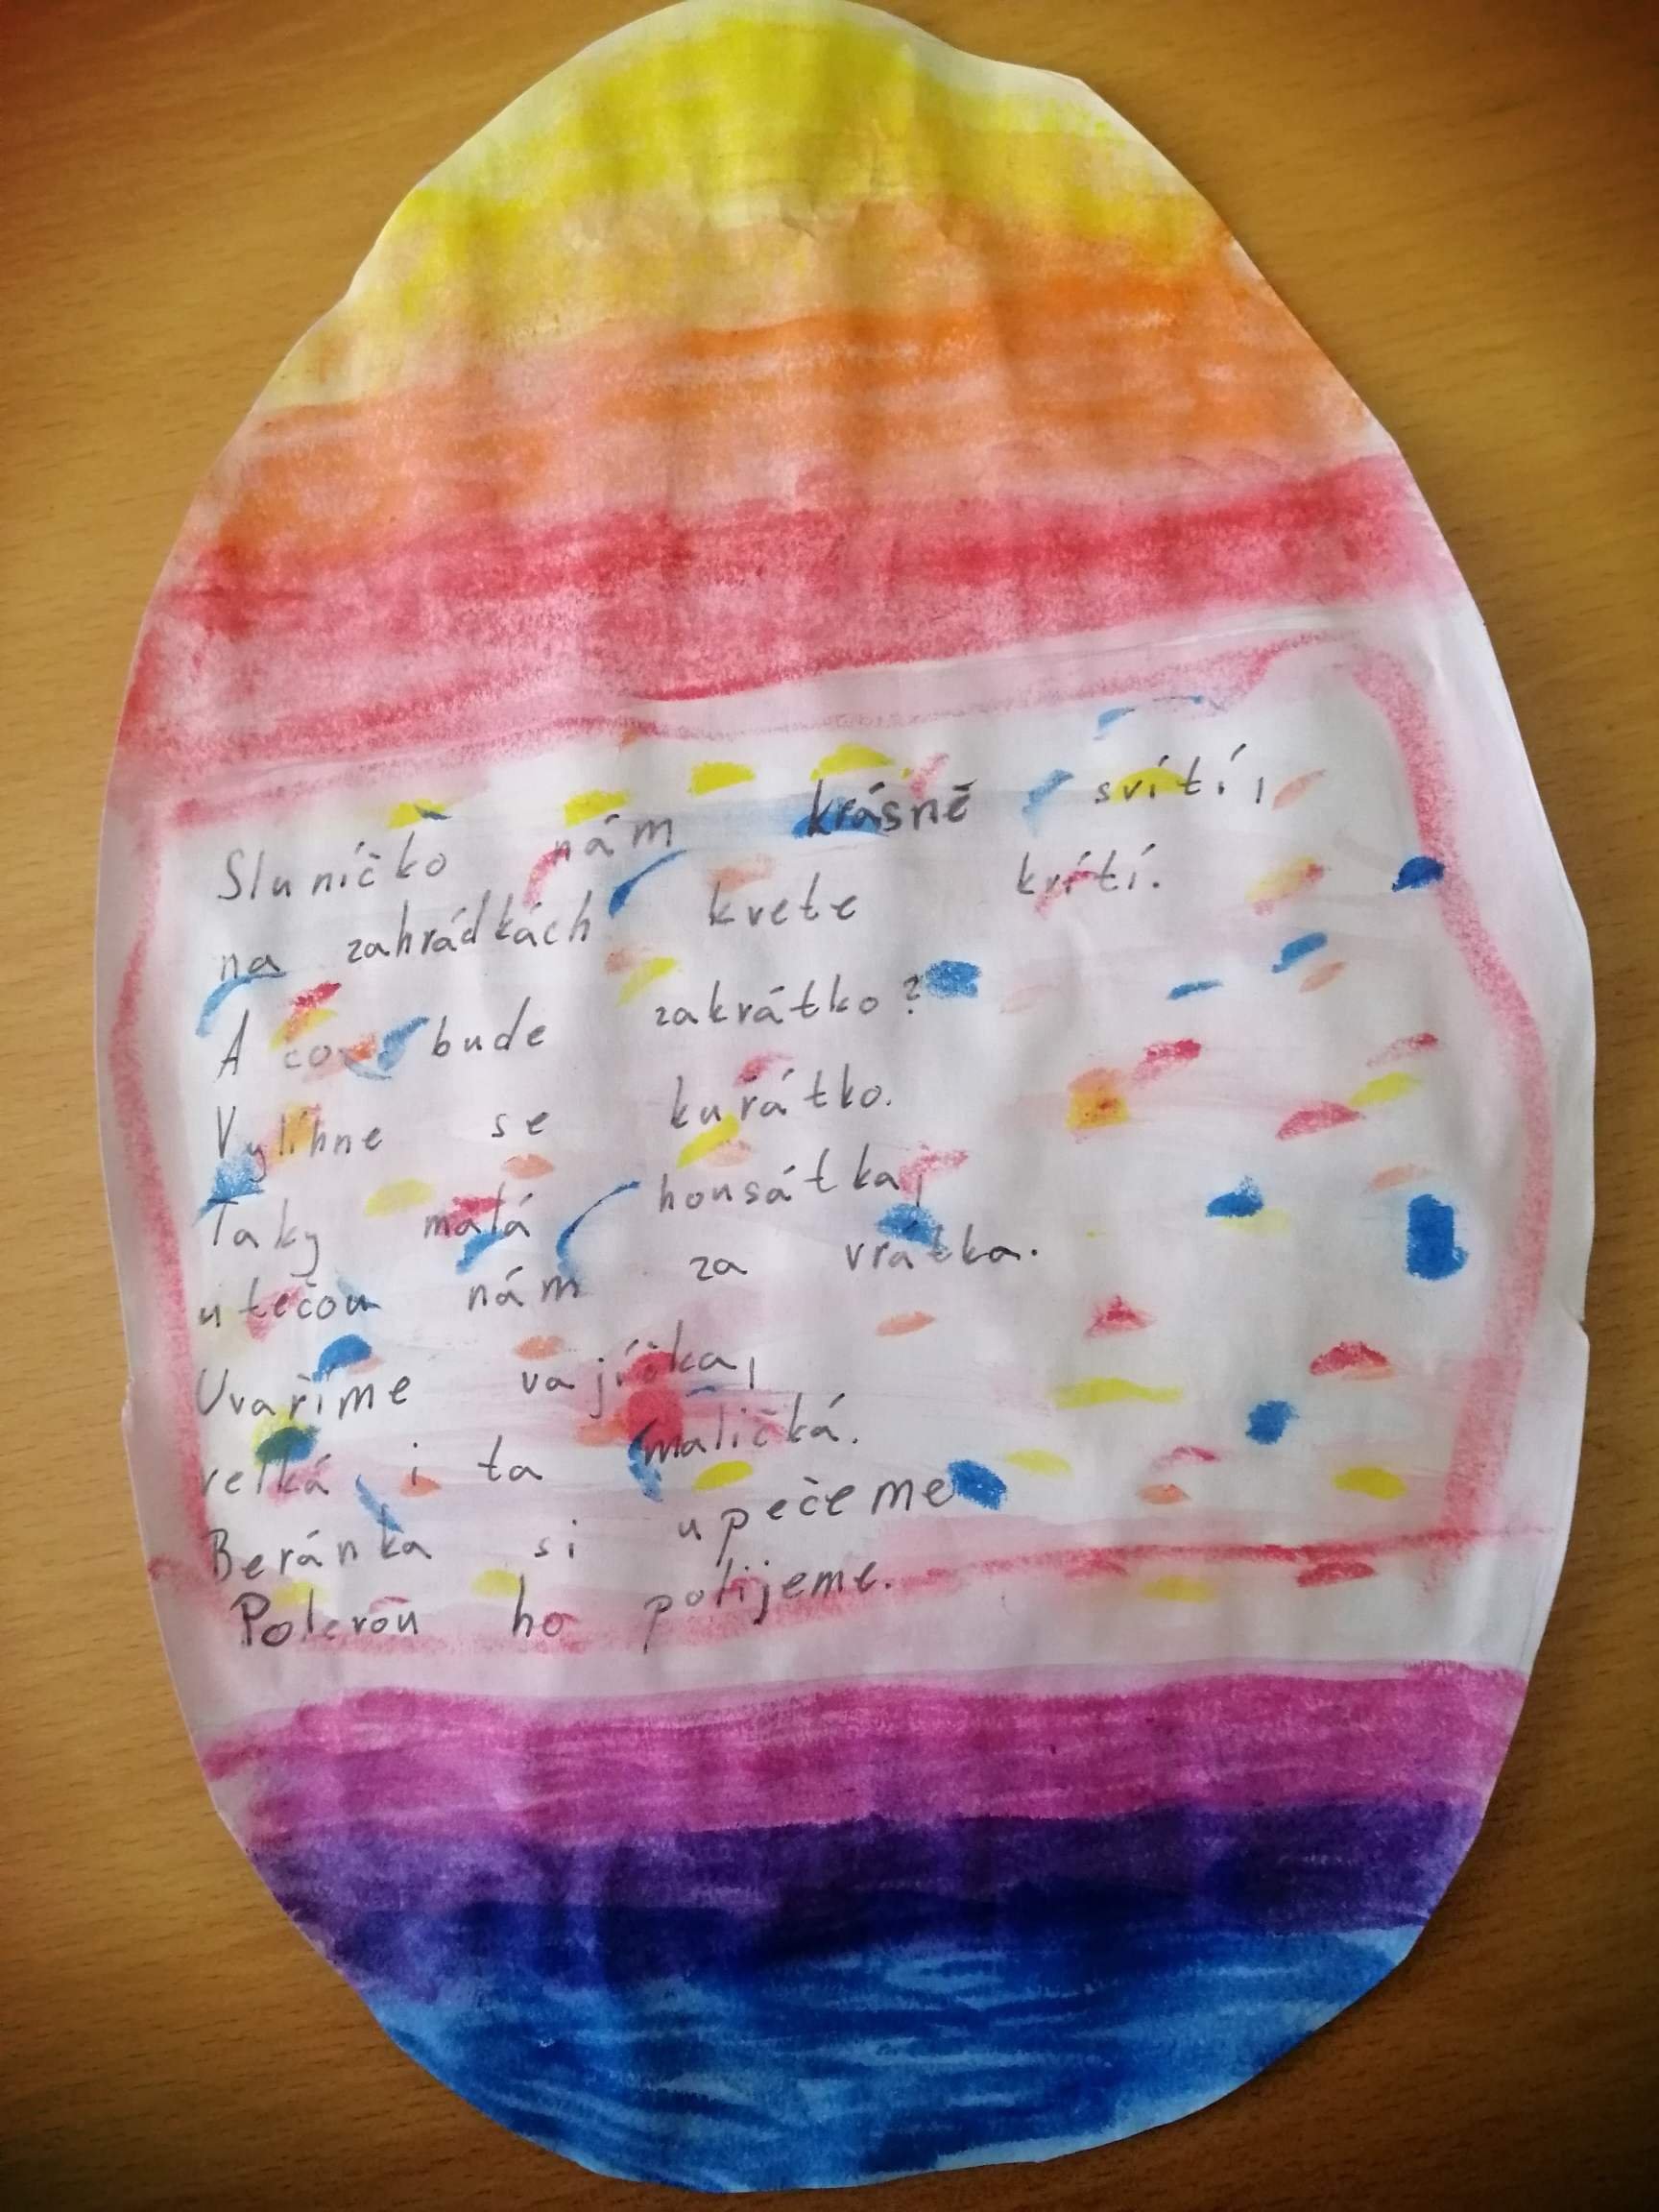 Sluníčko nám krásně svítí,
na zahrádkách kvete kvítí.
A co bude zakrátko?
Vylíhne se kuřátko.
Taky malá housátka,
utečou nám za vrátka.
Uvaříme vajíčka,
velká i ta maličká.
Beránka si upečeme
Polevou ho polijeme.